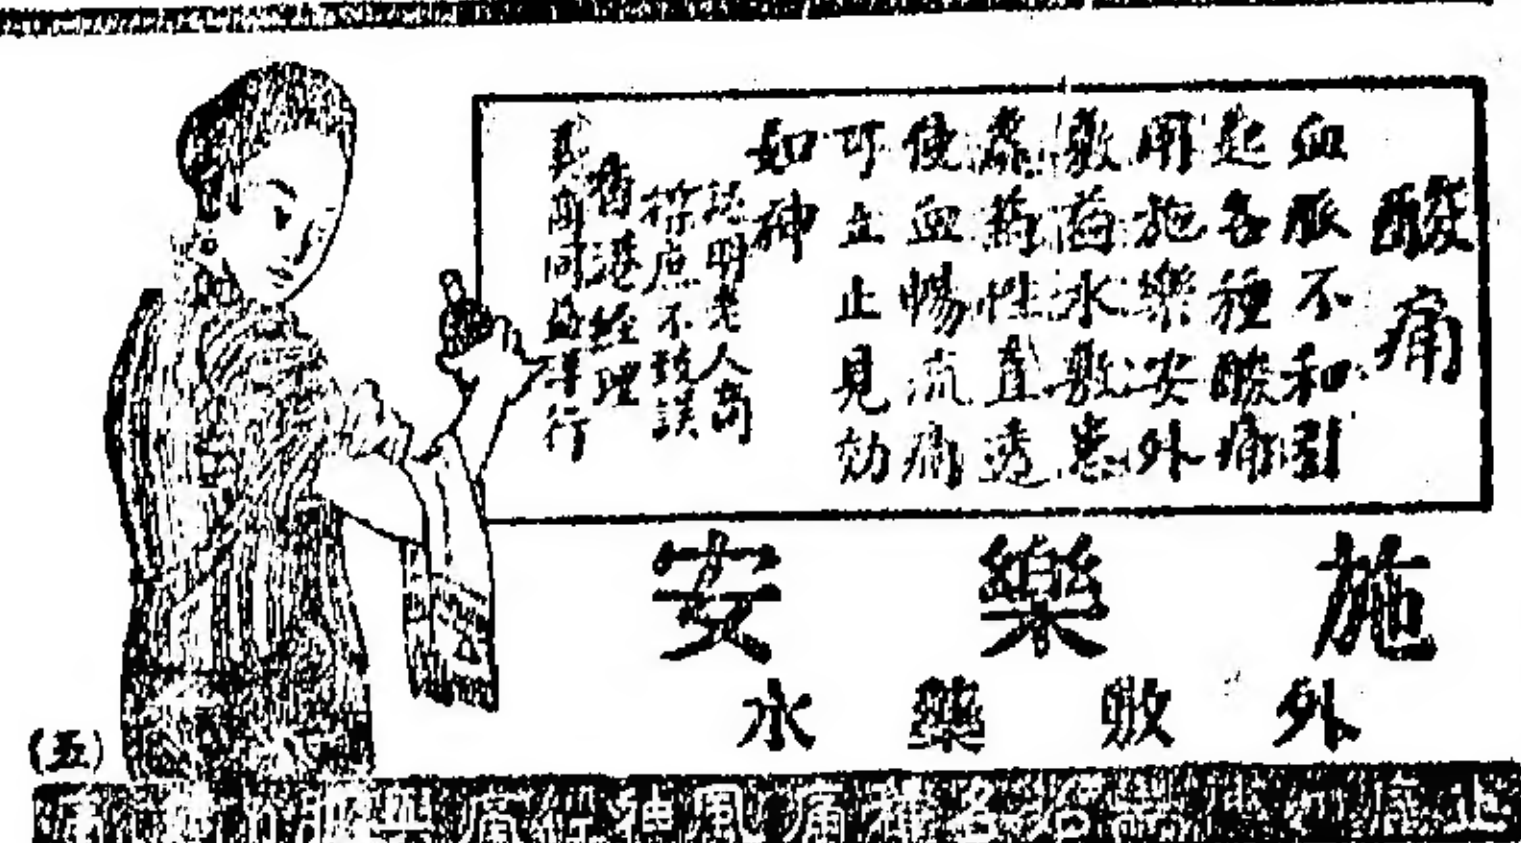 酸痛
血脈不和引
起各種酸痛
用施樂安外
敷葯水敷患
處葯性直透
使血暢流痛
可立止見効
如神
認明老人商
標庶不致誤
香港經理
真商同益洋行
施樂安
外敷藥水
(五)